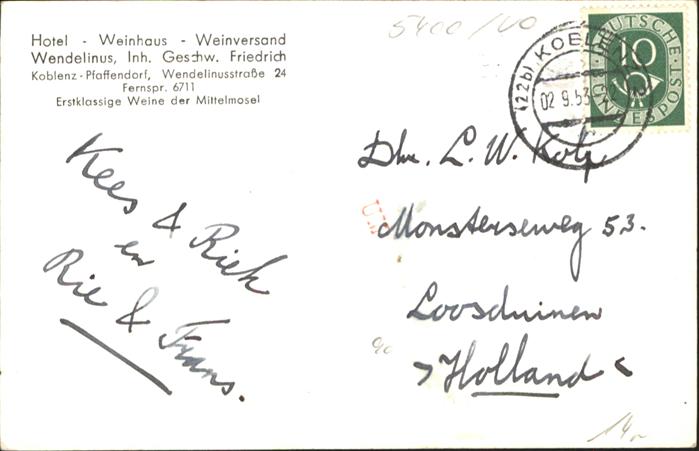 Hotel - Weinhaus - Weinversand
Wendelinus, Inh. Geschw. Friedrich
Koblenz-Pfaffendorf, Wendelinusstraße 24
Fernspr. 6711
Erstklassige Weine der Mittelmosel
5400/40
(22b) KOBLENZ
02.9.53
DEUTSCHE
10
BUNDESPOST
Kees & Riek
en
Rie & Frans.
Dhr. L. W. Kotp
Monsterseweg 53.
Loosduinen
>Holland<